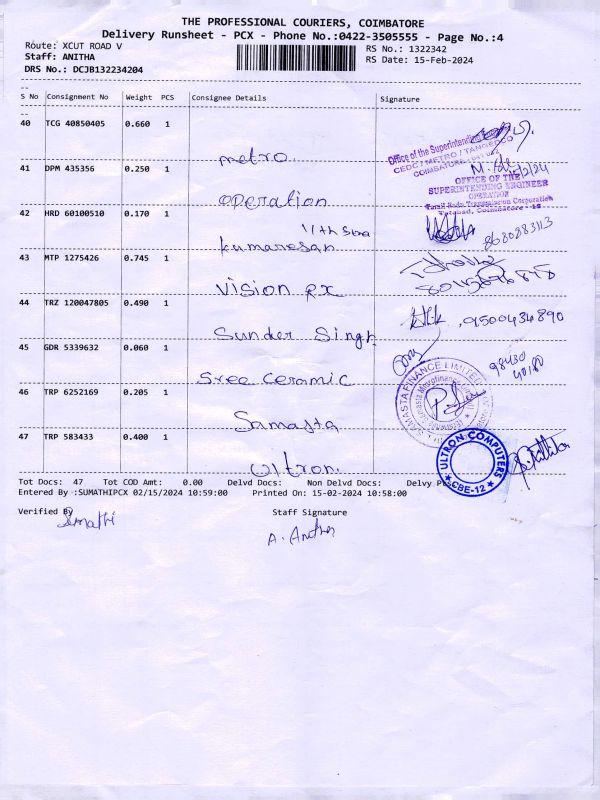 THE PROFESSIONAL COURIERS, COIMBATORE
Delivery Runsheet - PCX - Phone No.:0422-3505555 - Page No.:4
Route: XCUT ROAD V
RS No.: 1322342
Staff: ANITHA
RS Date: 15-Feb-2024
DRS No.: DCJB132234204
S No Consignment No Weight PCS Consignee Details Signature
40 TCG 40850405 0.660 1
metro
Office of the Superintending
CEDC / METRO / TANGEDCO
COIMBATORE 641 012
41 DPM 435356 0.250 1
operation
15/2/24
OFFICE OF THE
SUPERINTENDING ENGINEER
OPERATION
Tamil Nadu Transmission Corporation
Tatabad, Coimbatore - 12
42 HRD 60100510 0.170 1
11th
kumaresan
8680883113
43 MTP 1275426 0.745 1
vision Rx
44 TRZ 120047805 0.490 1
Sunder Singh
9500434890
45 GDR 5339632 0.060 1
Sree ceramic
98430
40180
46 TRP 6252169 0.205 1
Samasta
SAMASTA FINANCE LIMITED
47 TRP 583433 0.400 1
Ultron
ULTRON COMPUTERS
CBE-12
Tot Docs: 47 Tot COD Amt: 0.00 Delvd Docs: Non Delvd Docs: Delvy
Entered By :SUMATHIPCX 02/15/2024 10:59:00 Printed On: 15-02-2024 10:58:00
Verified By
Staff Signature
Sumathi
A. Anitha